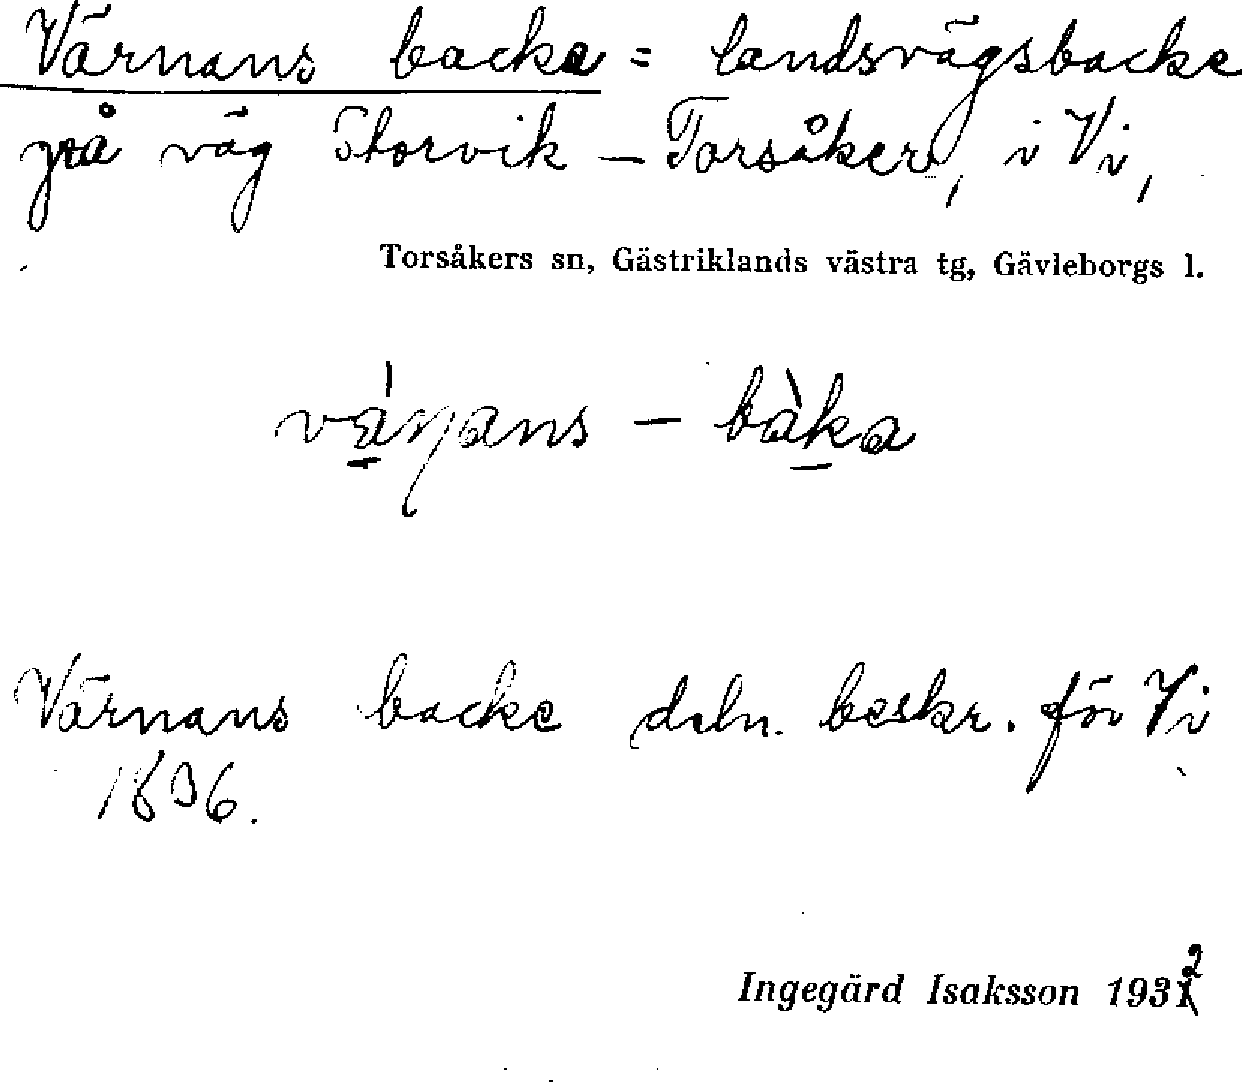 Värnans backe = landsvägsbacke
på väg Storvik – Torsåker, i Vi,
Torsåkers sn, Gästriklands västra tg, Gävleborgs l.
vá̱ṇans – bà̱ka
Värnans backe deln. beskr. för Vi
1896.
Ingegärd Isaksson 1932